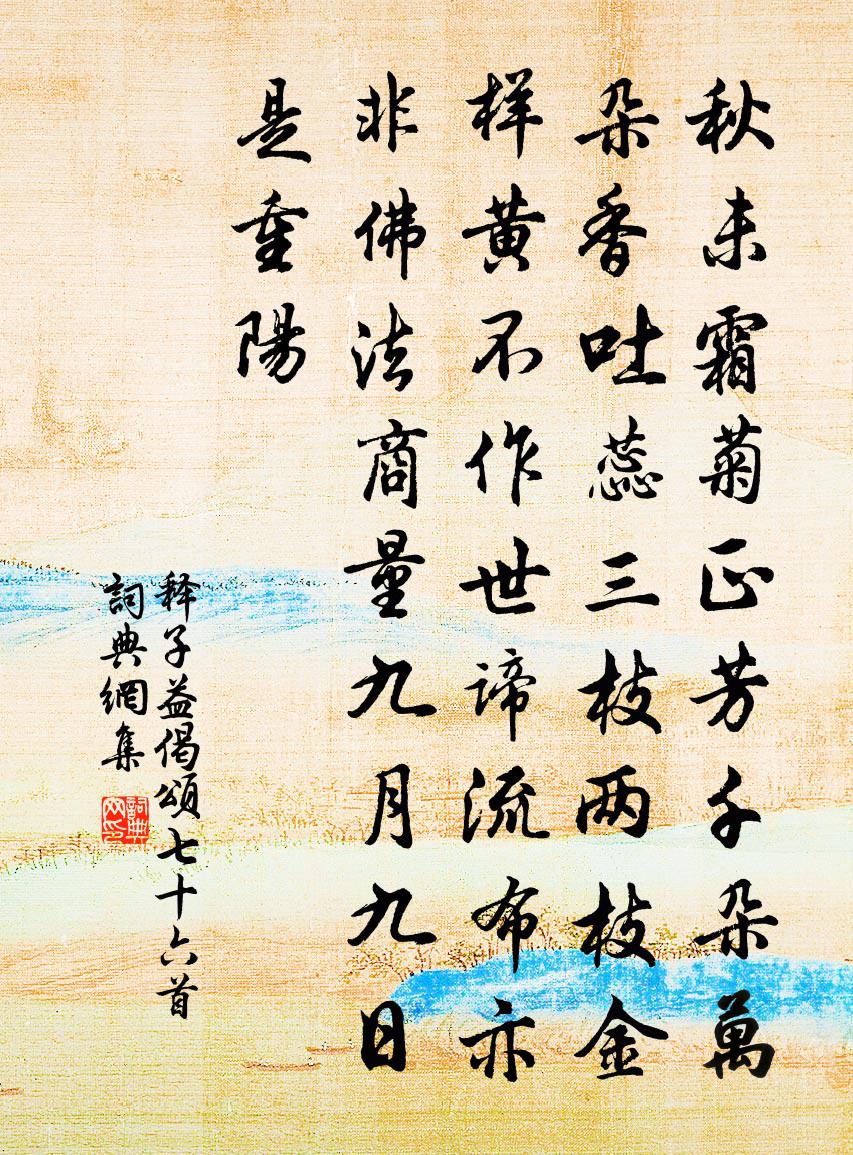 秋未霜菊正芳千朵萬
朵香吐蕊三枝两枝金
样黄不作世諦流布亦
非佛法商量九月九日
是重陽
释子益偈頌七十六首
詞典網集
詞典网印